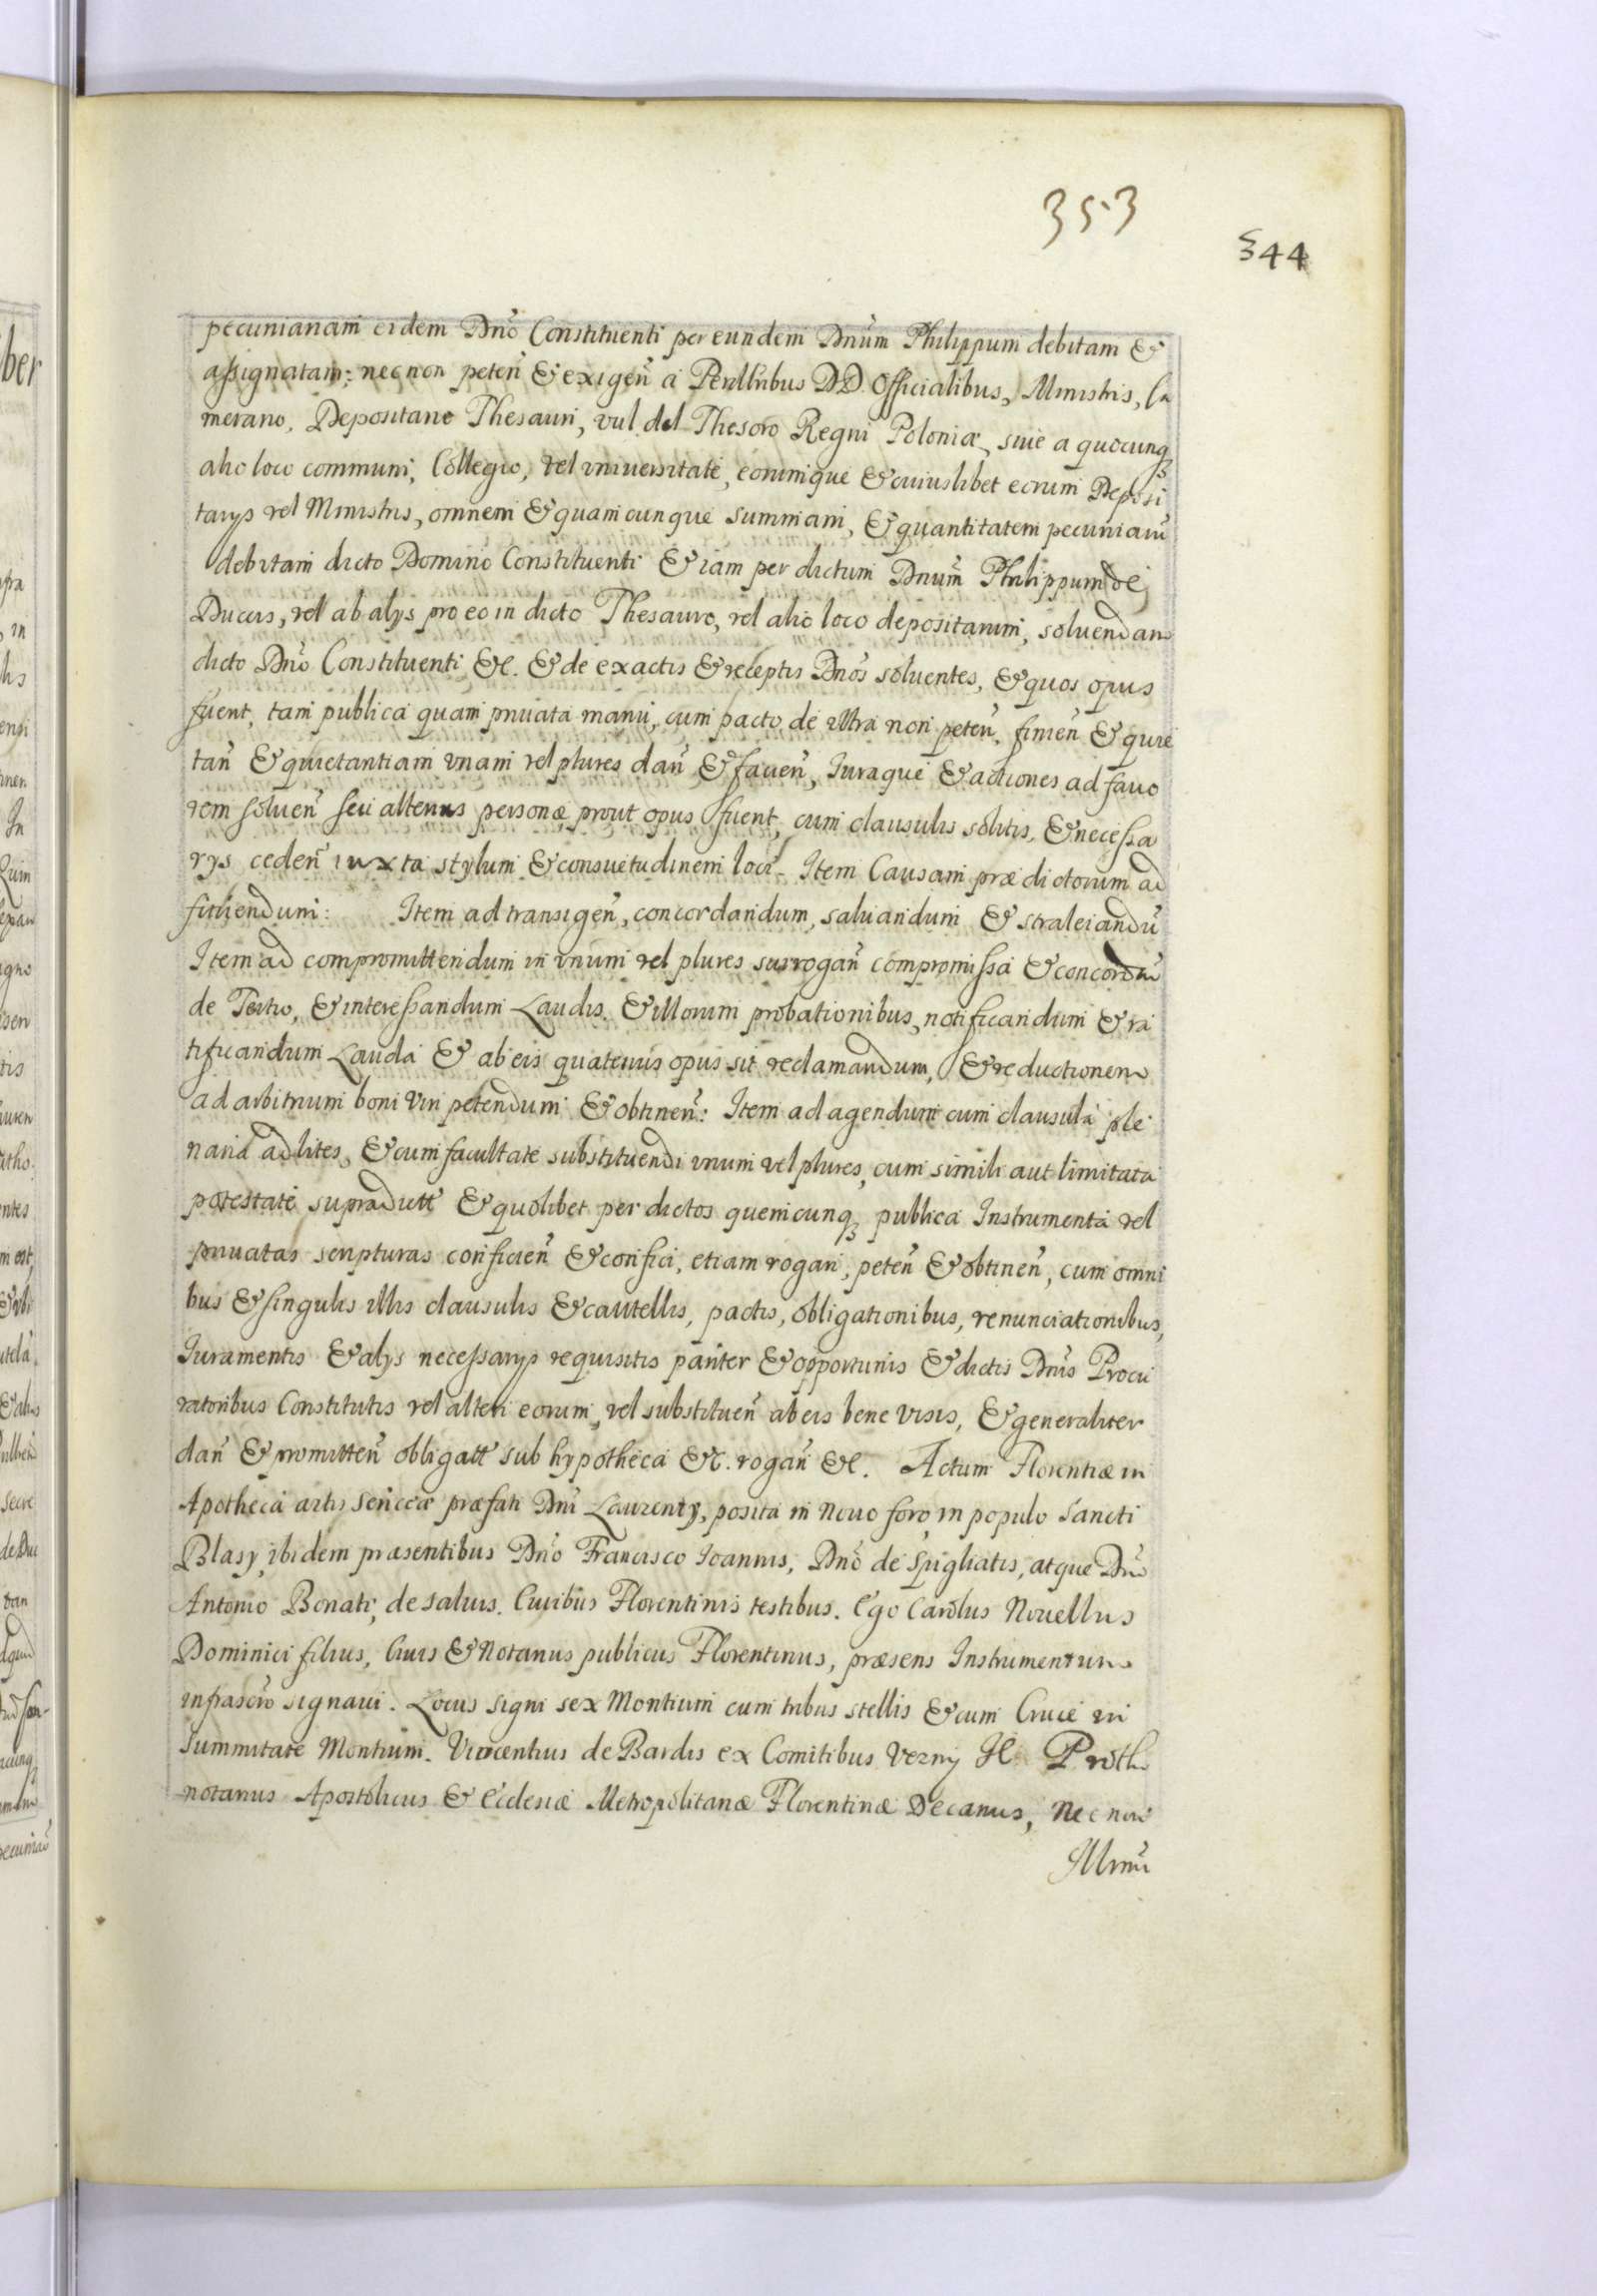 353
344
pecuniariam eidem Dno Constituenti per eundem Dnum Philippum debitam &
assignatam; nec non peten̄ & exigen̄ a Perillribus DD. Officialibus, Ministris, Ca
merario, Depositario Thesauri, vul. del Thesoro Regni Poloniæ, siue a quocunq;
alio loco communi, Collegio, vel vniuersitate, eorumque & cuiuslibet eorum Deposi
tarys vel Ministris, omnem & quamcunque summam, & quantitatem pecuniarū
debitam dicto Domino Constituenti & iam per dictum Dnum Philippum de
Ducis, vel ab alys pro eo in dicto Thesauro, vel alio loco depositarum, soluendam
dicto Dno Constituenti &c. & de exactis & receptis Dnos soluentes, & quos opus
fuerit, tam publica quam priuata manu, cum pacto de vltra non peten̄, finien̄ & quie
tan̄ & quietantiam vnam vel plures dan̄ & facien̄, Iuraque & actiones ad fauo
rem soluen̄ seu alterius personæ prout opus fuerit, cum clausulis solitis, & necessa
rys ceden̄ iuxta stylum & consuetudinem loci. Item Causam prædictorum ad
finiendum: Item ad transigen̄, concordandum, saluandum & stralciandū
Item ad compromittendum in vnum vel plures surrogan̄ compromissa &
de Tertio, & interessandum Laudis. & illorum probationibus, notificandum & ra
tificandum Lauda & ab eis quatenus opus sit reclamandum, & reductionem
ad arbitrium boni viri petendum & obtinen̄: Item ad agendum cum clausula ple
naria ad lites, & cum facultate substituendi vnum vel plures, cum simili aut limitata
potestate supradictt & quolibet per dictos quemcunq; publica Instrumenta vel
priuatas scripturas conficien̄ & confici, etiam rogari, peten̄ & obtinen̄, cum omni
bus & singulis illis clausulis & cautellis, pactis, obligationibus, renunciationibus,
Iuramentis & alys necessarys requisitis pariter & opportunis & dictis Dnis Procu
ratoribus Constitutis vel alteri eorum, vel substituen̄ ab eis bene visis, & generaliter
dan̄ & promitten̄ obligatt sub hypotheca &c. rogan̄ &c. Actum Florentiæ in
Apotheca artis sericeæ præfati Dni Laurenty, posita in Nouo foro in populo Sancti
Blasy, ibidem præsentibus Dno Francisco Ioannis, Dno de Spigliatis, atque Dno
Antonio Bonati, de saluis. Ciuibus Florentinis testibus. Ego Carolus Nouellus
Dominici filius, Ciuis & Notarius publicus Florentinus, præsens Instrumentum
infrascro signaui. Locus signi sex Montium cum tribus stellis & cum Cruce in
Summitate Montium. Vincentius de Bardis ex Comitibus Verny H. Proth
notarius Apostolicus & Ecclesiæ Metropolitanæ Florentinæ Decanus, Nec non
Illrmi